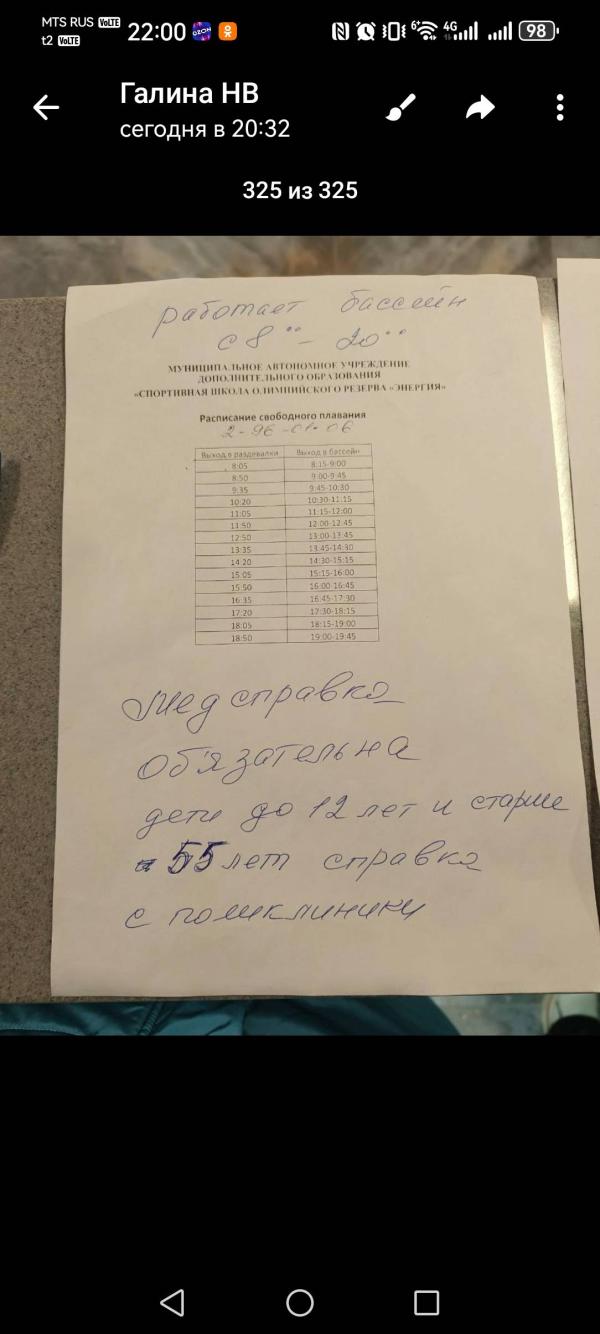 MTS RUS VoLTE
t2 VoLTE
22:00
OZON
6+
4G
98
Галина НВ
сегодня в 20:32
325 из 325
работает бассейн
с 8°° - 20°°
МУНИЦИПАЛЬНОЕ АВТОНОМНОЕ УЧРЕЖДЕНИЕ
ДОПОЛНИТЕЛЬНОГО ОБРАЗОВАНИЯ
«СПОРТИВНАЯ ШКОЛА ОЛИМПИЙСКОГО РЕЗЕРВА «ЭНЕРГИЯ»
Расписание свободного плавания
2-96-01-06
Выход в раздевалки Выход в бассейн
8:05 8:15-9:00
8:50 9:00-9:45
9:35 9:45-10:30
10:20 10:30-11:15
11:05 11:15-12:00
11:50 12:00-12:45
12:50 13:00-13:45
13:35 13:45-14:30
14:20 14:30-15:15
15:05 15:15-16:00
15:50 16:00-16:45
16:35 16:45-17:30
17:20 17:30-18:15
18:05 18:15-19:00
18:50 19:00-19:45
Мед справка
обязательна
дети до 12 лет и старше
55 лет справка
с поликлиники